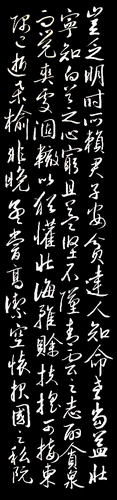 豈乏明時所賴君子安貧達人知命老當益壯
寧知白首之心窮且益堅不墜青雲之志酌貪泉
而覺爽處涸轍以猶懽北海雖賒扶搖可接東
隅已逝桑榆非晚孟嘗高潔空懷報國之私阮